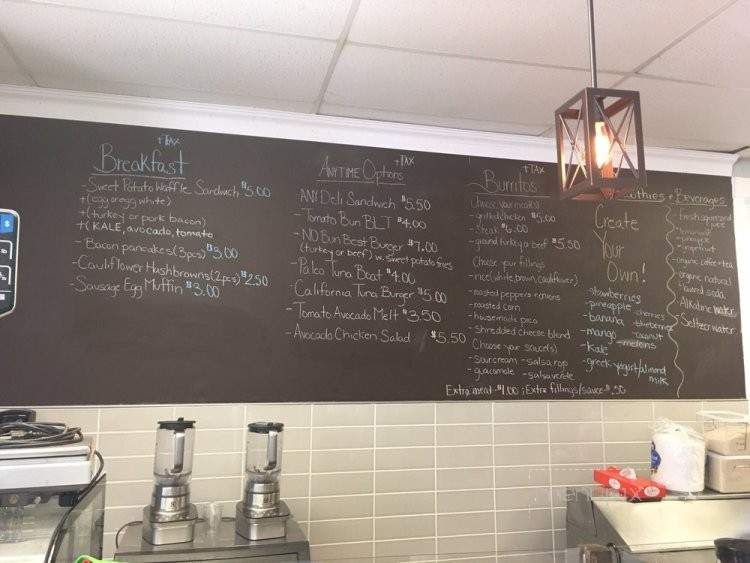 +TAX
Breakfast
-Sweet Potato Waffle Sandwich $5.00
+(egg or egg white)
+(turkey or pork bacon)
+(KALE, avocado, tomato
-Bacon pancakes(3pcs) $5.00
-Cauliflower Hashbrowns(2pcs) $2.50
-Sausage Egg Muffin $3.00
+TAX
ANYTIME Options
-ANY Deli Sandwich $5.50
-Tomato Bun BLT $4.00
-NO Bun Best Burger $7.00
(turkey or beef) w. sweet potato fries
-Paleo Tuna Boat $4.00
-California Tuna Burger $5.00
-Tomato Avocado Melt $3.50
-Avocado Chicken Salad $5.50
+TAX
Burritos
Choose your meat(s)
-grilled chicken $5.00
-Steak $6.00
-ground turkey or beef $5.50
Choose your fillings
-rice(white, brown, cauliflower)
-roasted peppers + onions
-roasted corn
-housemade pico
-Shredded cheese blend
Choose your sauce(s)
-sour cream -salsa roja
-guacamole -salsa verde
Extra meat-$1.00 ; Extra fillings/sauce-$.50
+ Beverages
Create
Your
Own!
-strawberries
-pineapple
-banana
-mango
-kale
-greek yogurt/almond
milk
-cherries
-blueberries
-fresh squeezed
juice
-lemonade
-pineapple
-grapefruit
-organic coffee+tea
-organic natural
flavored soda
-Alkaline water
-Seltzer water